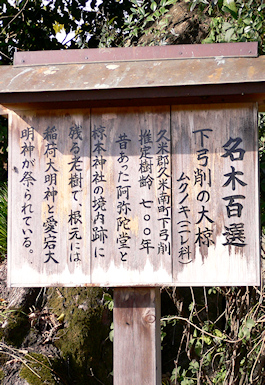 名木百選
下弓削の大椋
(ムクノキ(ニレ科)
久米郡久米南町下弓削
推定樹齢 七〇〇年
昔あった阿弥陀堂と
椋本神社の境内跡に
残る老樹で、根元には
稲荷大明神と愛宕大
明神が祭られている。